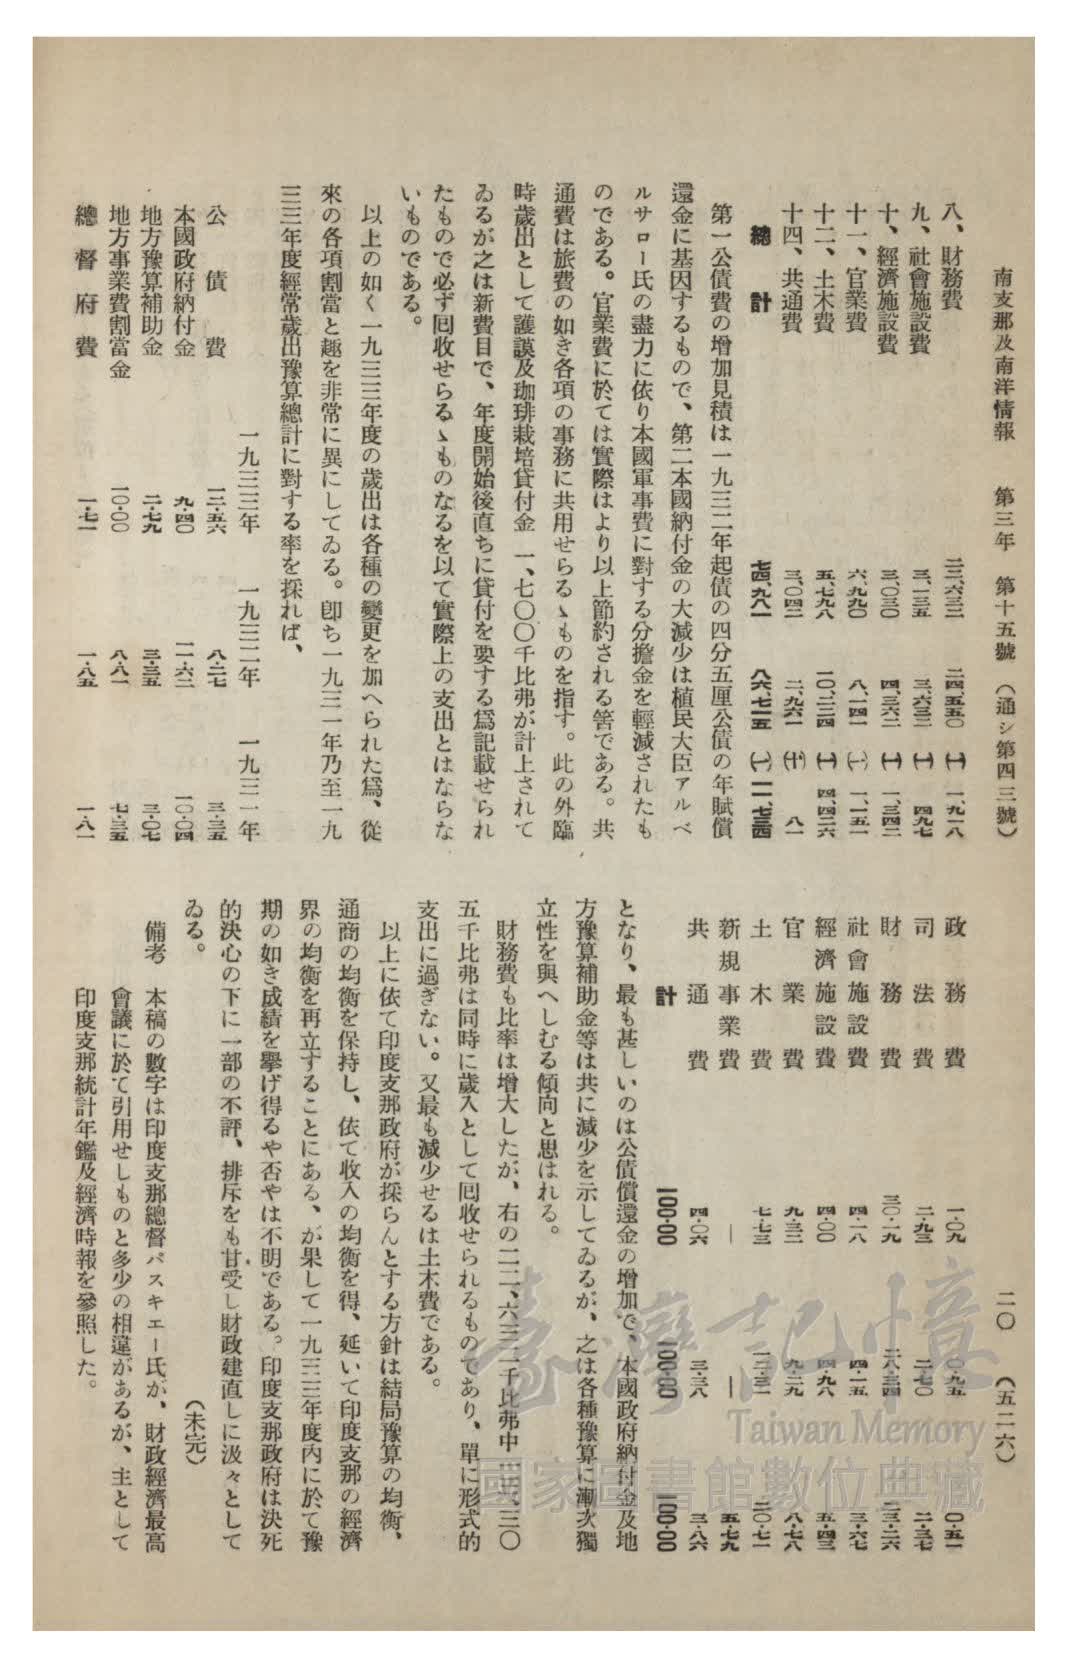 南支那及南洋情報　第三年　第十五號　（通シ第四三號）　二〇　（五二六）
八、財務費　二二、六三二　二四、五五〇　(一)　一、九一八
九、社會施設費　三、一三五　三、六三二　(一)　四九七
十、經濟施設費　三、〇三〇　四、三六二　(一)　一、三四二
十一、官業費　六、九九〇　八、一四一　(一)　一、一五一
十二、土木費　五、七九八　一〇、二二四　(一)　四、四二六
十四、共通費　三、〇四二　二、九六一　(十)　八一
總計　七四、九八一　八六、七一五　(一)　一一、七三四
第一公債費の增加見積は一九三二年起債の四分五厘公債の年賦償
還金に基因するもので、第二本國納付金の大減少は植民大臣アルベ
ルサロー氏の盡力に依り本國軍事費に對する分擔金を輕減されたも
のである。官業費に於ては實際はより以上節約される筈である。共
通費は旅費の如き各項の事務に共用せらるゝものを指す。此の外臨
時歲出として護謨及珈琲栽培貸付金　一、七〇〇千比弗が計上されて
ゐるが之は新費目で、年度開始後直ちに貸付を要する爲記載せられ
たもので必ず囘收せらるゝものなるを以て實際上の支出とはならな
いものである。
以上の如く一九三三年度の歲出は各種の變更を加へられた爲、從
來の各項割當と趣を非常に異にしてゐる。卽ち一九三一年乃至一九
三三年度經常歲出豫算總計に對する率を採れば、
一九三三年　一九三二年　一九三一年
公債費　一二・五六　八・二七　三・三五
本國政府納付金　九・四〇　一一・六二　一〇・〇四
地方豫算補助金　二・七九　三・三五　三・〇七
地方事業費割當金　一〇・〇〇　八・八一　七・三五
總督府費　一・七一　一・八五　一・八一
政務費　一・〇九　〇・九五　〇・五一
司法費　二・九三　二・七〇　二・三七
財務費　三〇・一九　二八・三四　二三・二六
社會施設費　四・一八　四・一五　三・六七
經濟施設費　四・〇〇　四・九八　五・四三
官業費　九・三二　九・二九　八・七八
土木費　七・七三　一二・三一　二〇・七一
新規事業費　—　—　五・七九
共通費　四・〇六　三・三八　三・八六
計　100・00　100・00　100・00
となり、最も甚しいのは公債償還金の增加で、本國政府納付金及地
方豫算補助金等は共に減少を示してゐるが、之は各種豫算に漸次獨
立性を與へしむる傾向と思はれる。
財務費も比率は增大したが、右の二二、六三二千比弗中一五、三〇
五千比弗は同時に歲入として囘收せられるものであり、單に形式的
支出に過ぎない。又最も減少せるは土木費である。
以上に依て印度支那政府が採らんとする方針は結局豫算の均衡、
通商の均衡を保持し、依て收入の均衡を得、延いて印度支那の經濟
界の均衡を再立することにある、が果して一九三三年度內に於て豫
期の如き成績を擧げ得るや否やは不明である。印度支那政府は決死
的決心の下に一部の不評、排斥をも甘受し財政建直しに汲々として
ゐる。　（未完）
備考　本稿の數字は印度支那總督パスキエー氏が、財政經濟最高
會議に於て引用せしものと多少の相違があるが、主として
印度支那統計年鑑及經濟時報を參照した。
臺灣記憶
Taiwan Memory
國家圖書館數位典藏